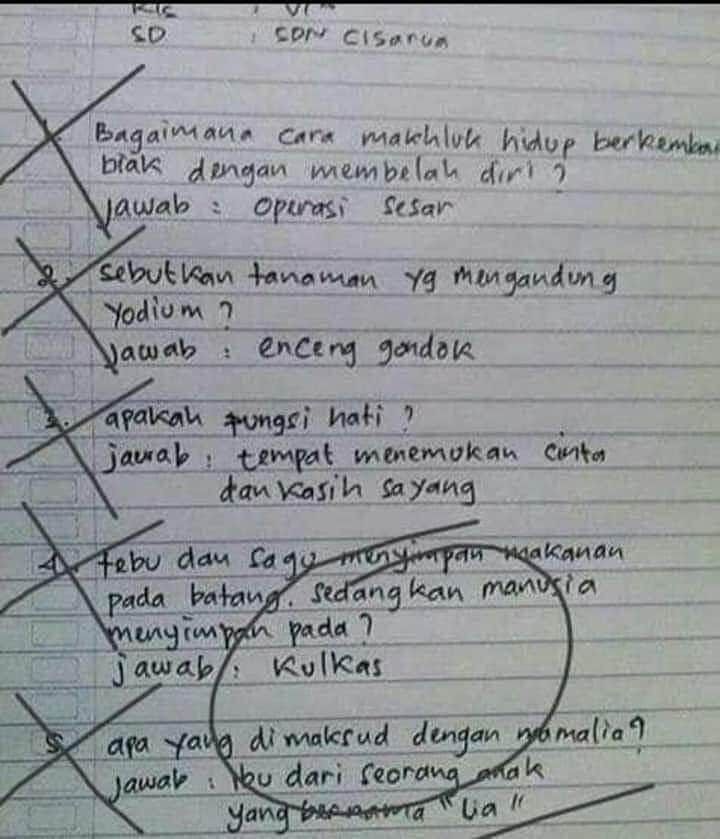 SD : SDN Cisarua
1. Bagaimana cara makhluk hidup berkemba
biak dengan membelah diri ?
jawab : operasi sesar
2. sebutkan tanaman yg mengandung
yodium ?
jawab : enceng gondok
3. apakah fungsi hati ?
jawab : tempat menemukan cinta
dan kasih sayang
4. tebu dan sagu menyimpan makanan
pada batang. sedangkan manusia
menyimpan pada ?
jawab : Kulkas
5. apa yang dimaksud dengan mamalia ?
jawab : ibu dari seorang anak
yang bernama "Lia"